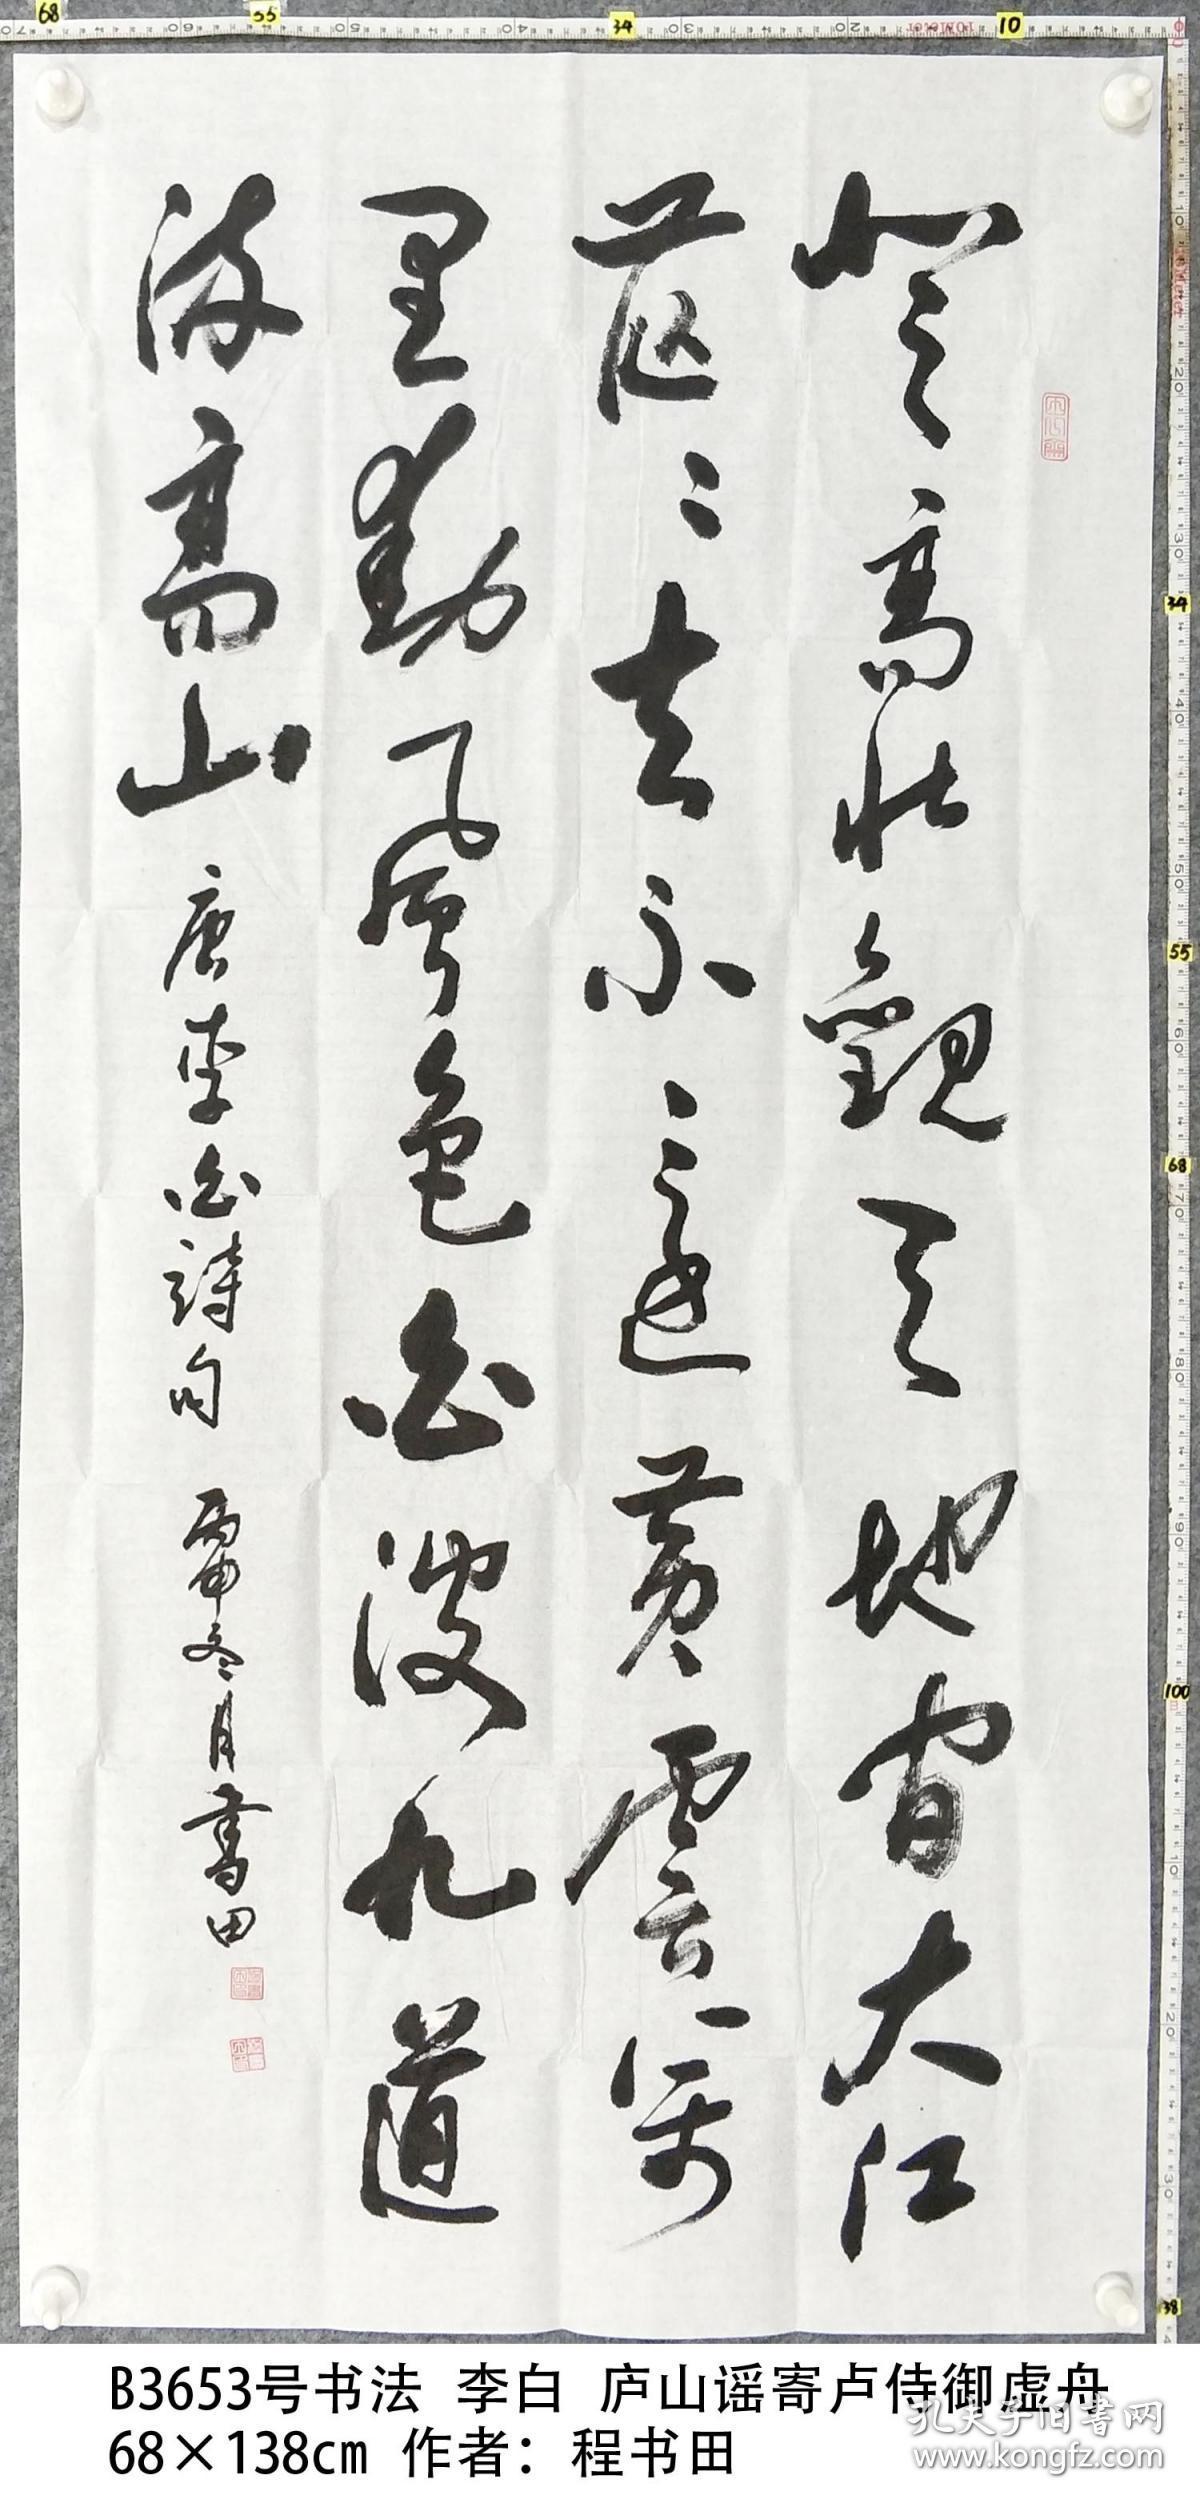 登高壮觀天地間大江
茫々去不々還黄雲萬
里動風色白波九道
流高山
唐李白詩句 丙申冬月書田
B3653号书法 李白 庐山谣寄卢侍御虚舟
68×138cm 作者：程书田
孔夫子旧书网
www.kongfz.com